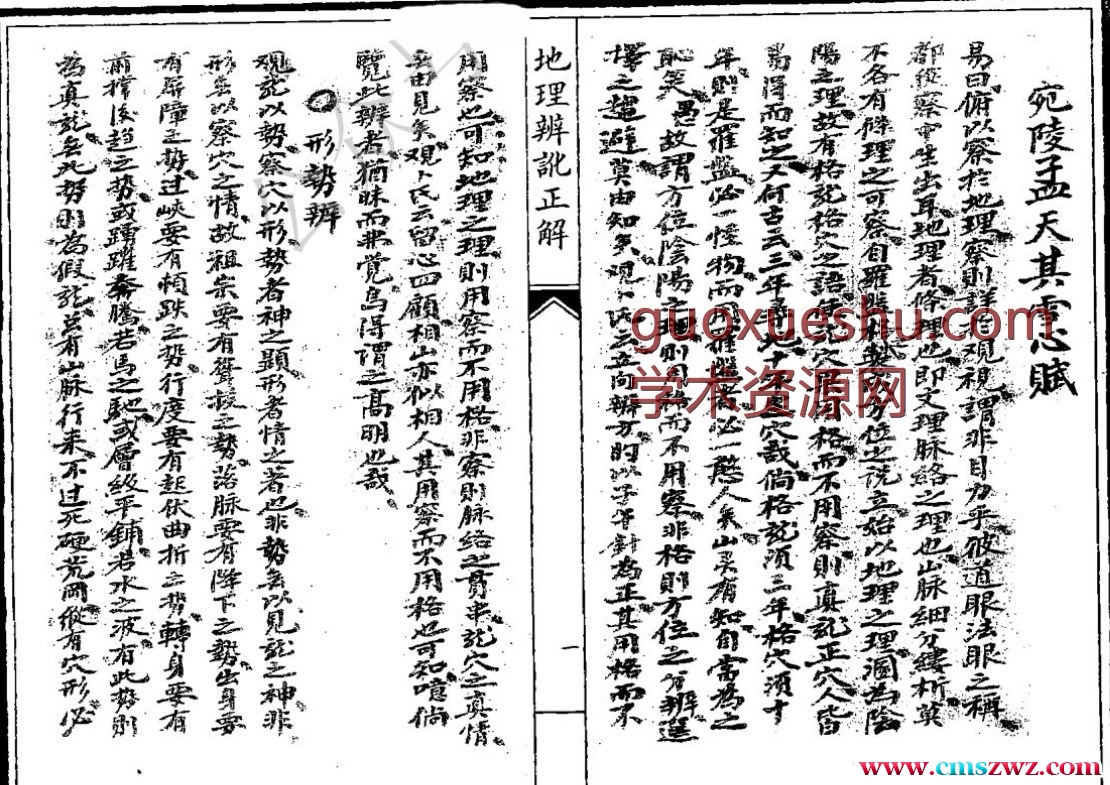 宛陵孟天其雪心賦
易曰俯以察於地理察則詳於觀視謂非目力乎彼道眼法眼之稱
都從察中生出耳地理者條理也即文理脉絡之理也山脉細分縷析莫
不各有條理之可察自羅經方位之説立始以地理之理為陰
陽之理故有格龍格穴之語龍穴用格而不用察則真龍正穴人皆
易得而知之又何古云三年尋地十年穴哉倘格龍須三年格穴須十
年則是羅盤必一怪物而用羅盤者必一憨人矣山灵有知自當為之
恥笑愚故謂方位陰陽之理則用格而不用察非格則方位之分辨選
擇之趨避莫由知矣觀卜氏云立向辨方的以子午針為正其用格而不
地理辨訛正解
一
用察也可知地理之理則用察而不用格非察則脉絡之貫串龍穴之真情
無由見矣觀卜氏云留心四顧相山亦似相人其用察而不用格也可知噫倘
覽此辨者猶昧而弗覺烏得謂之高明也哉
形勢辨
觀龍以勢察穴以形勢者神之顯形者情之著也非勢無以見龍之神非
形無以察穴之情故祖宗要有聳拔之勢落脉要有降下之勢出身要
有屏障之勢过峽要有頓跌之势行度要有起伏曲折之勢轉身要有
前撐後趕之势或踴躍奔騰若馬之馳或層級平鋪若水之波有此勢則
為真龍無此勢則為假龍雖有山脉行来不过死硬荒岡縱有穴形必
guoxueshu.com
学术资源网
www.cmszwz.com